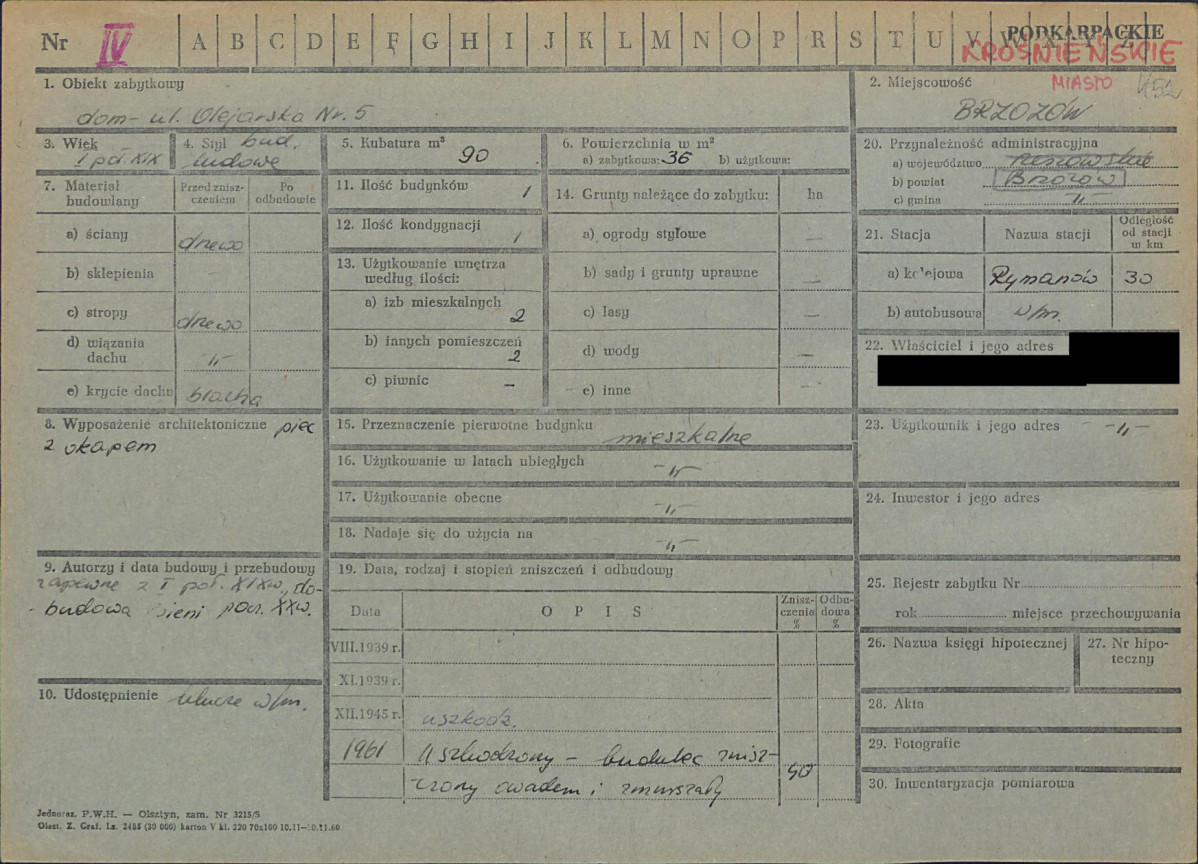 Nr IV A B C D E F G H I J K L M N O P R S T U V W X Y Z
PODKARPACKIE
KROŚNIEŃSKIE
MIASTO
1. Obiekt zabytkowy
dom - ul. Olejarska Nr. 5
2. Miejscowość
BRZOZÓW
3. Wiek
I poł. XIX
4. Styl bud.
ludowe
5. Kubatura m³
90
6. Powierzchnia w m²
a) zabytkowa: 36 b) użytkowa:
7. Materiał budowlany
Przed znisz-
czeniem
Po
odbudowie
a) ściany drewo
b) sklepienia -
c) stropy drewo
d) wiązania
dachu -"-
e) krycie dachu blacha
8. Wyposażenie architektoniczne piec
z okapem
9. Autorzy i data budowy i przebudowy
zapewne z I poł. XIXw., do-
budowa sieni pocz. XXw.
10. Udostępnienie klucze w/m.
11. Ilość budynków 1
12. Ilość kondygnacji 1
13. Użytkowanie wnętrza
według ilości:
a) izb mieszkalnych 2
b) innych pomieszczeń 2
c) piwnic -
14. Grunty należące do zabytku: ha
a) ogrody stylowe —
b) sady i grunty uprawne —
c) lasy —
d) wody —
e) inne —
15. Przeznaczenie pierwotne budynku mieszkalne
16. Użytkowanie w latach ubiegłych -"-
17. Użytkowanie obecne -"-
18. Nadaje się do użycia na -"-
19. Data, rodzaj i stopień zniszczeń i odbudowy
Data OPIS
Znisz-
czenia
%
Odbu-
dowa
%
VIII.1939 r.
XI.1939 r.
XII.1945 r. uszkodz.
1961 Uszkodzony - budulec znisz-
czony owadem i zmurszały 50
20. Przynależność administracyjna
a) województwo rzeszowskie
b) powiat Brzozów
c) gmina -"-
21. Stacja Nazwa stacji
Odległość
od stacji
w km
a) kolejowa Rymanów 30
b) autobusowa w/m.
22. Właściciel i jego adres
23. Użytkownik i jego adres -"-
24. Inwestor i jego adres
25. Rejestr zabytku Nr
rok miejsce przechowywania
26. Nazwa księgi hipotecznej
27. Nr hipo-
teczny
28. Akta
29. Fotografie
30. Inwentaryzacja pomiarowa
Jednoraz. P.W.H. — Olsztyn, zam. Nr 3215/S